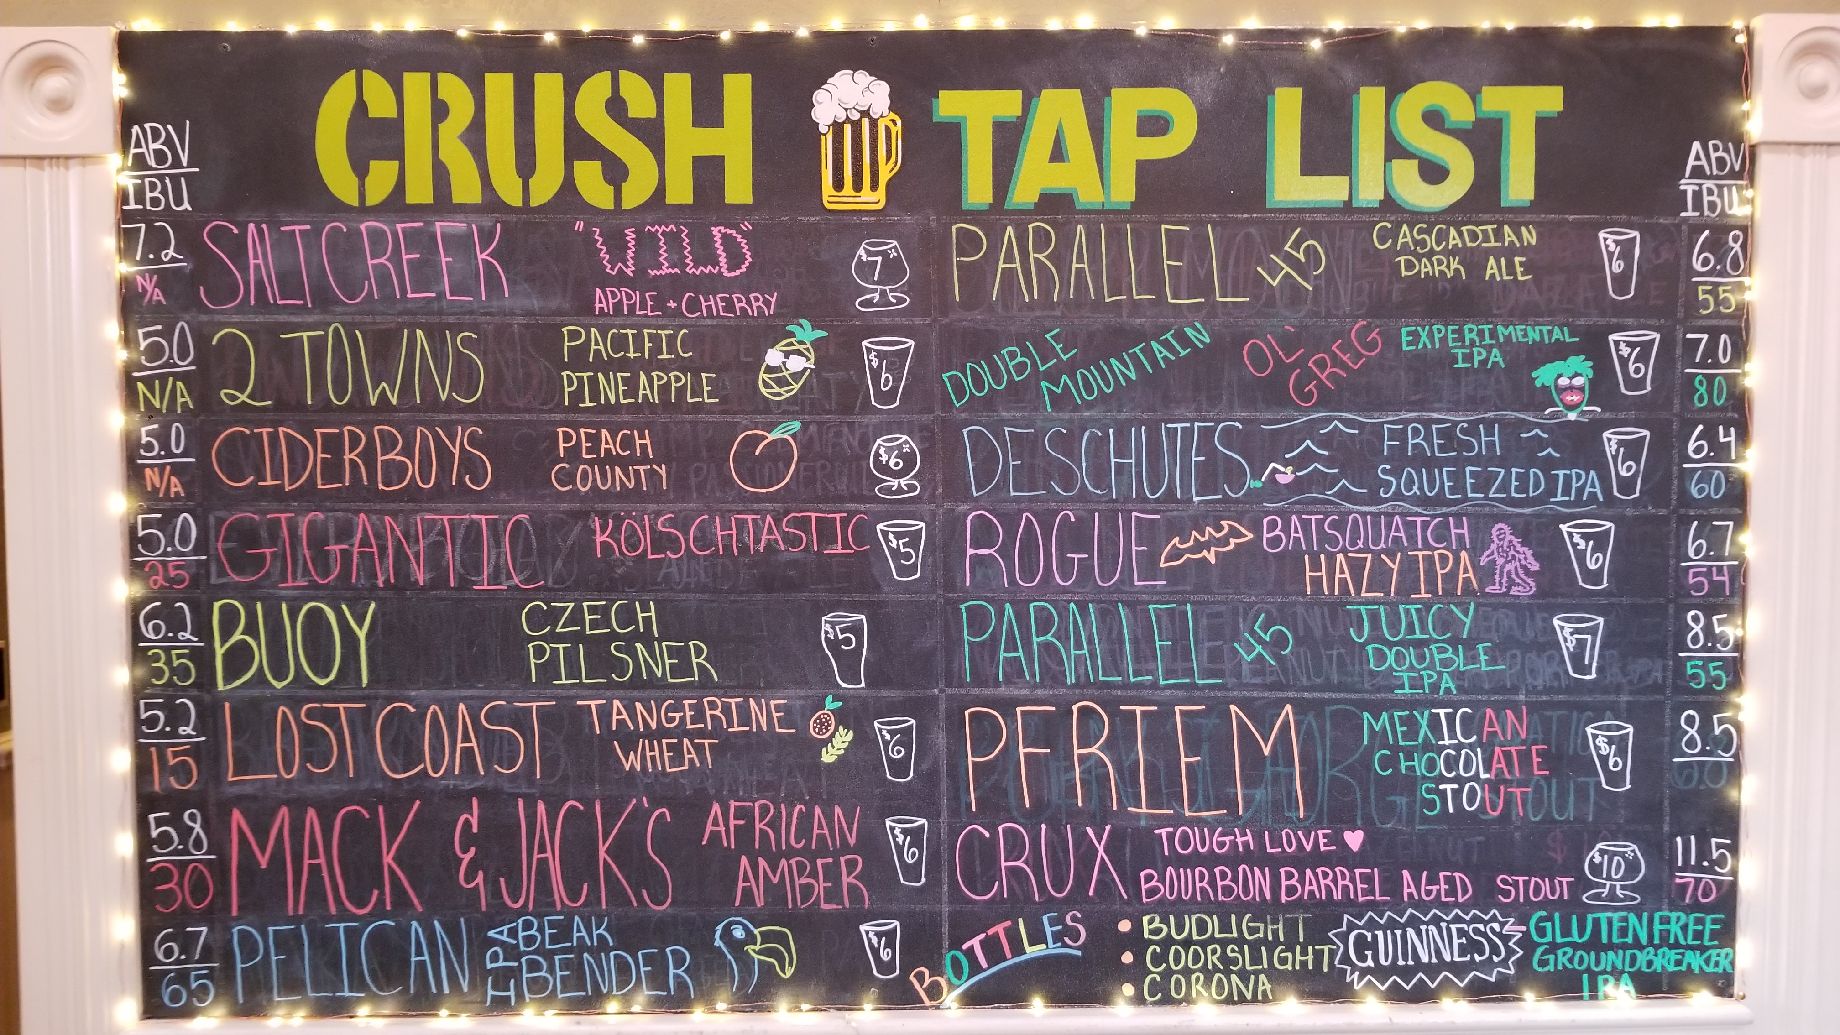 CRUSH TAP LIST
ABV
IBU
7.2
N/A
SALTCREEK
"WILD"
APPLE + CHERRY
$7
5.0
N/A
2 TOWNS
PACIFIC
PINEAPPLE
$6
5.0
N/A
CIDERBOYS
PEACH
COUNTY
$6
5.0
25
GIGANTIC
KÖLSCHTASTIC
$5
6.2
35
BUOY
CZECH
PILSNER
$5
5.2
15
LOST COAST
TANGERINE
WHEAT
$6
5.8
30
MACK & JACK'S
AFRICAN
AMBER
$6
6.7
65
PELICAN
IPA
BEAK
BENDER
$6
ABV
IBU
PARALLEL 45
CASCADIAN
DARK ALE
$6
6.8
55
DOUBLE
MOUNTAIN
OL'
GREG
EXPERIMENTAL
IPA
$6
7.0
80
DESCHUTES
FRESH
SQUEEZED IPA
$6
6.4
60
ROGUE
BATSQUATCH
HAZY IPA
$6
6.7
54
PARALLEL 45
JUICY
DOUBLE
IPA
$7
8.5
55
PFRIEM
MEXICAN
CHOCOLATE
STOUT
$6
8.5
CRUX
TOUGH LOVE
BOURBON BARREL AGED STOUT
$10
11.5
70
BOTTLES
• BUDLIGHT
• COORSLIGHT
• CORONA
GUINNESS
GLUTEN FREE
GROUNDBREAKER
IPA